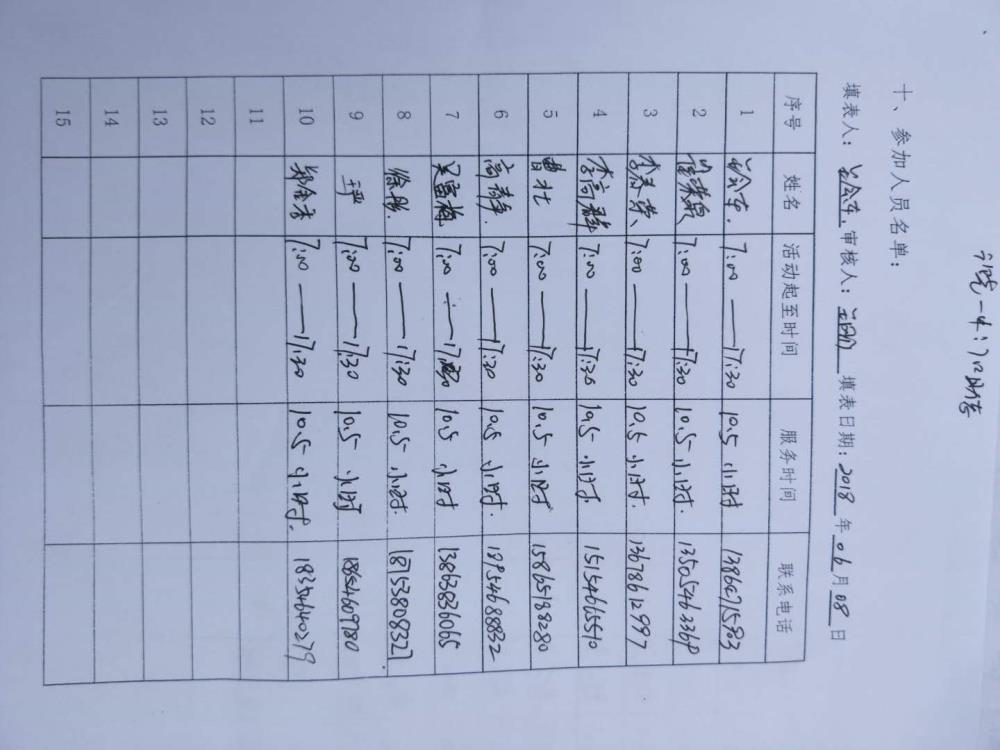 十、参加人员名单：
填表人： 审核人： 填表日期：2018年06月08日
序号 姓名 活动起至时间 服务时间 联系电话
1 7:00——17:30 10.5小时 13864715983
2 7:00——17:30 10.5小时. 13505463369
3 李春荣 7:00——17:30 10.5小时. 13678612997
4 李高群 7:00——17:30 10.5小时. 15154665510
5 曹壮 7:00——17:30 10.5小时 15865188280
6 高静. 7:00——17:30 10.5小时. 18954688832
7 吴富梅 7:00——17:30 10.5小时 13863836065
8 徐彤 7:00——17:30 10.5小时. 18753808327
9 王严 7:00——17:30 10.5小时 18654609780
10 郑金香 7:00——17:30 10.5小时. 18354640279
11
12
13
14
15